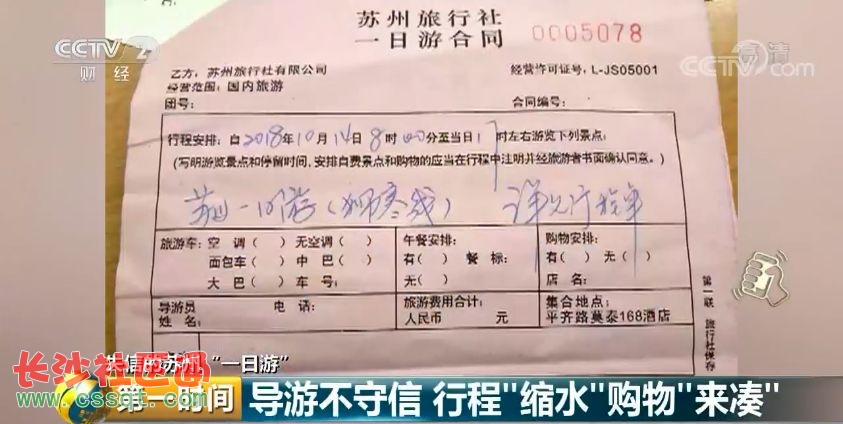 苏州旅行社
一日游合同
0005078
CCTV 2
财经
高清
CCTV.com
乙方：苏州旅行社有限公司
经营许可证号：L-JS05001
经营范围：国内旅游
团号：
合同编号：
行程安排：自2018年10月14日8时00分至当日17时左右游览下列景点：
(写明游览景点和停留时间，安排自费景点和购物的应当在行程中注明并经旅游者书面确认同意。)
苏州一日游(狮寒线) 详见行程单
旅游车：空 调( ) 无空调( )
面包车( ) 中 巴( )
大 巴( ) 车 号：
午餐安排：
有( ) 餐 标：
无( )
购物安排：
有( ) 无( )
店 名：
导游员
姓 名：
电 话：
旅游费用合计：
人民币 元
集合地点：
平齐路莫泰168酒店
第一联 旅行社保存
失信的苏州"一日游"
长沙社区网
www.cssqt.com
第一时间
导游不守信 行程"缩水"购物"来凑"